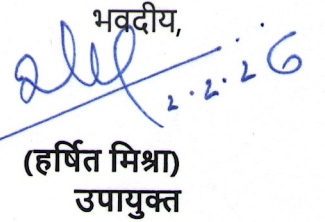 भवदीय,
2.2.26
(हर्षित मिश्रा)
उपायुक्त